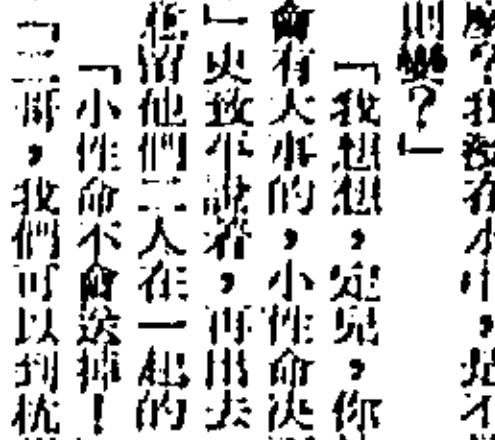 我沒在水中,是不
則變?」
「我想想,定兒,你
會有大事的,小性命決
」史致平說着,再出去
留他們二人在一起的
「小性命不會送掉!
「二哥,我們可以到杭